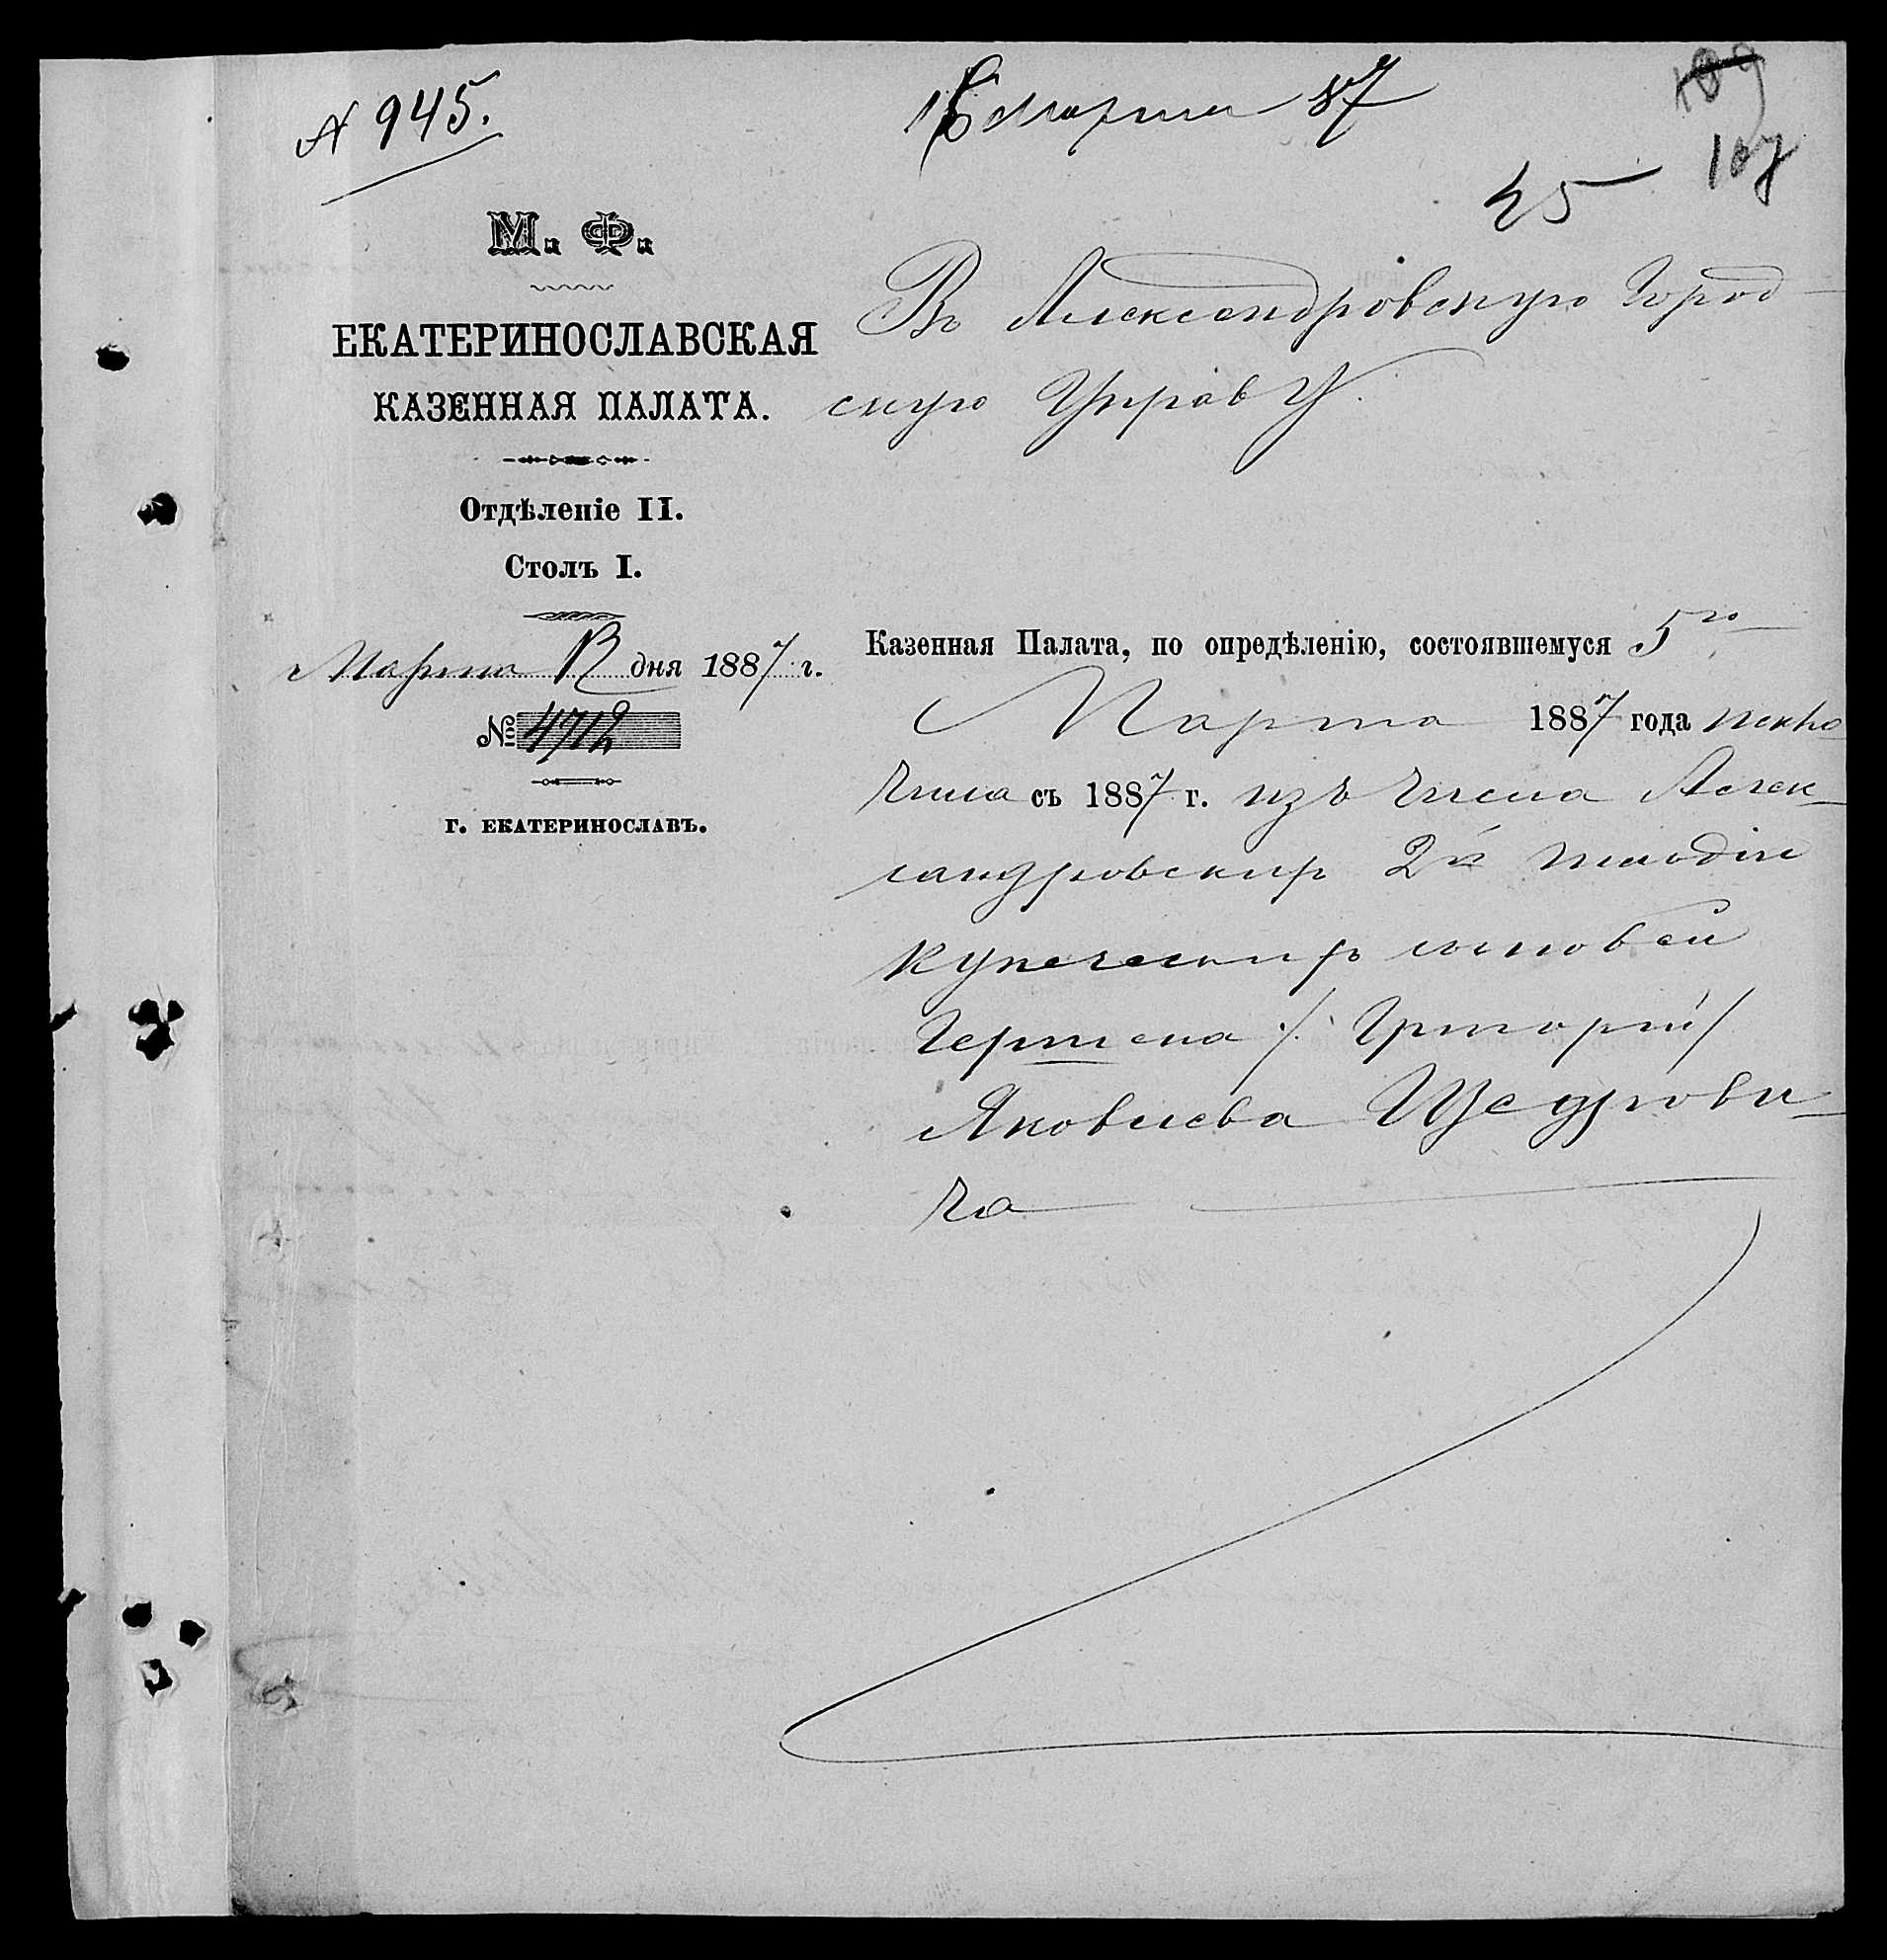 № 945.
16 Марта 87
109
107
25
М. Ф.
ЕКАТЕРИНОСЛАВСКАЯ
КАЗЕННАЯ ПАЛАТА.
Отдѣленіе II.
Столъ I.
Марта 12 дня 1887 г.
№ 4712
г. ЕКАТЕРИНОСЛАВЪ.
Въ Александровскую Город
скую Управу.
Казенная Палата, по опредѣленію, состоявшемуся 5го
Марта 1887 года исклю
чила съ 1887 г. изъ числа Алек-
сандровскихъ 2й гильдіи
купеческихъ сыновей
Гершена /: Григорій/
Яковлева Щедрови-
ча